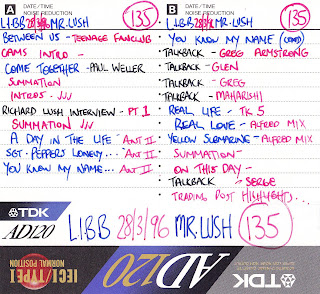 A DATE/TIME
NOISE REDUCTION
LIBB 28/3/96 MR. LUSH 135
BETWEEN US - TEENAGE FANCLUB
CAMS INTRO -
COME TOGETHER - PAUL WELLER
SUMMATION
INTROS - JJJ
RICHARD LUSH INTERVIEW - PT 1
SUMMATION JJJ
A DAY IN THE LIFE - ANT II
SGT. PEPPERS LONELY... ANT II
YOU KNOW MY NAME... ANT II
B DATE/TIME
NOISE REDUCTION
LIBB 28/3/96 MR. LUSH 135
YOU KNOW MY NAME
TALKBACK - GREG ARMSTRONG
TALKBACK - GLEN
TALKBACK - GREG
TALKBACK - MAHARISHI
REAL LIFE - TK 5
REAL LOVE - ALFRED MIX
YELLOW SUBMARINE - ALFRED MIX
SUMMATION -
ON THIS DAY -
TALKBACK - SERGE
TRADING POST HIGHLIGHTS...
TDK
AD120
LIBB 28/3/96 MR. LUSH 135
IECI/TYPE I
NORMAL POSITION
AD120
TDK